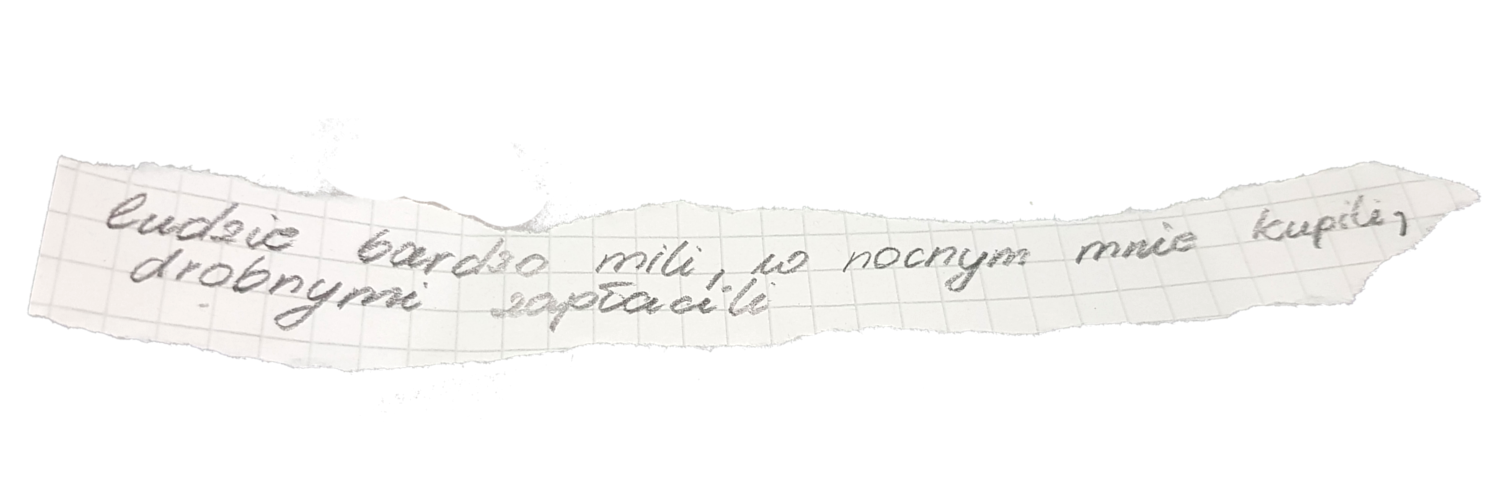 ludzie bardzo mili, w nocnym mnie kupili,
drobnymi zapłacili